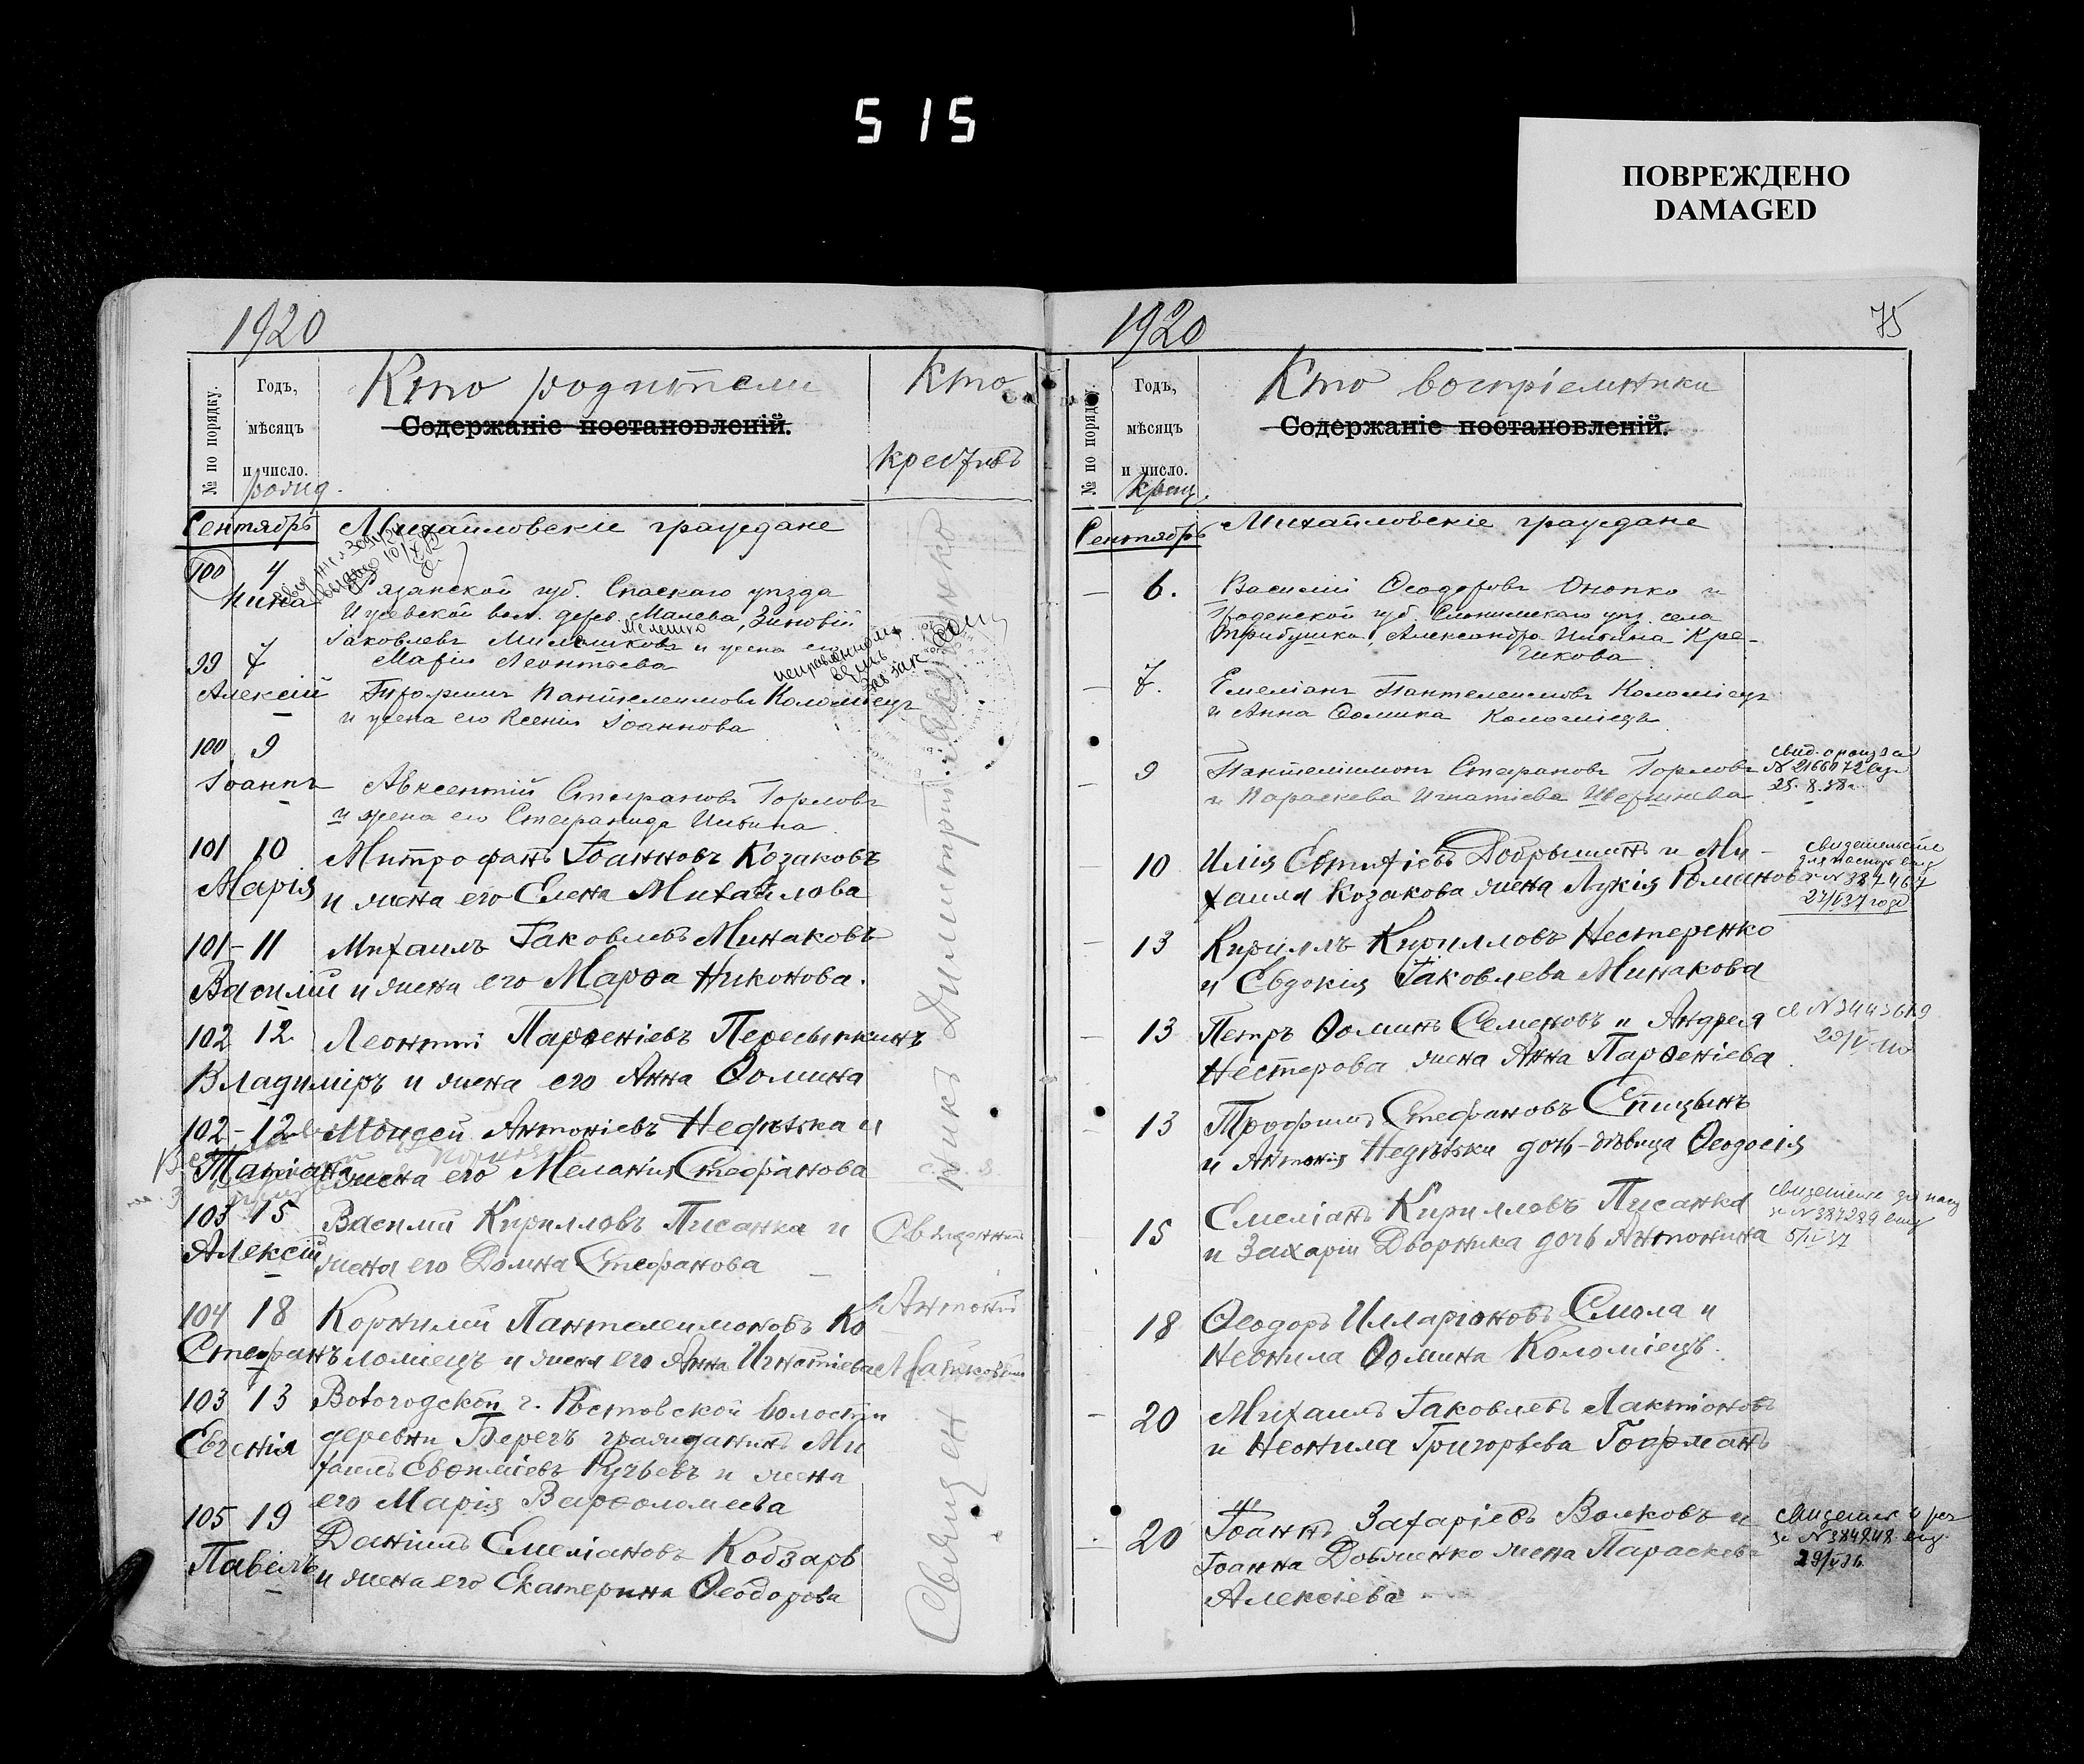 515
ПОВРЕЖДЕНО
DAMAGED
1920
№ по порядку.
Годъ,
мѣсяцъ
и число.
рожд.
Кто родители
Содержаніе постановленій.
Кто
крестилъ
Сентябрь
Михайловскіе граждане
100 4
Нина
Рязанской губ. Спаскаго уѣзда
вол. дерев. Малева, Зиновій
Іаковлевъ и жена его
Марія Леонтьева
99 7
Алексій
Трофимъ Пантелеимоновъ Коломіецъ
и жена его Ксенія Іоаннова
100 9
Іоаннъ
Авксентій Стефановъ Горловъ
и жена его Стефанида Ильина
101 10
Марія
Митрофанъ Іоанновъ Козаковъ
и жена его Елена Михайлова
101 - 11
Василій
Михаилъ Іаковлевъ Минаковъ
и жена его Марѳа Никонова.
102 12
Владиміръ
Леонтій Парѳеніевъ Пересыпкинъ
и жена его Анна Ѳомина
102 - 12
Татіана
Моисей Антоніевъ Недѣлька и
жена его Меланія Стефанова
103 15
Алексій
Василій Кирилловъ Писанка и
жена его Домна Стефанова
104 18
Стефанъ
Корнилій Пантелеимоновъ Ко
ломіецъ и жена его Анна Игнатіева
103 13
Евгенія
Вологодской г. Ростовской волости
деревни Берегъ гражданинъ Ми
хаилъ Евѳиміевъ Ручьевъ и жена
его Марія Варѳоломеева
105 19
Павелъ
Даніилъ Емеліановъ Кобзарь
и жена его Екатерина Ѳеодорова
Священникъ Димитрій
Священникъ
Антоній
1920
75
№ по порядку.
Годъ,
мѣсяцъ
и число.
крещ.
Кто воспріемники
Содержаніе постановленій.
Сентябрь
Михайловскіе граждане
6.
Василій Ѳеодоровъ Онопко и
Гроденской губ. Слонимскаго уѣз. села
Александра Ильина
7.
Емеліанъ Пантелеимоновъ Коломіецъ
и Анна Ѳомина Коломіецъ
9
Пантелеимонъ Стефановъ Горловъ
и Параскева Игнатіева
25.8.38г.
10
Илія Евтихіевъ Добрышинъ и Ми-
хаила Козакова жена Лукія Романова
Свидетельство
для паспорт. выд
№ 387467
27/V 37 года
13
Кириллъ Кирилловъ Нестеренко
и Евдокія Іаковлева Минакова
13
Петръ Ѳоминъ Семеновъ и Андрея
Нестерова жена Анна Парѳеніева
13
Трофимъ Стефановъ Спицынъ
и Антонія Недѣльки дочь-дѣвица Ѳеодосія
15
Емеліанъ Кирилловъ Писанка
и Захаріи Дворника дочь Антонина
№ 387289
18
Ѳеодоръ Илларіоновъ Смола и
Неонила Ѳомина Коломіецъ.
20
Михаилъ Іаковлевъ Лактіоновъ
и Неонила Григорьева Гофманъ
20
Іоаннъ Захаріевъ Волковъ и
Іоанна Довженко жена Параскева
Алексіева